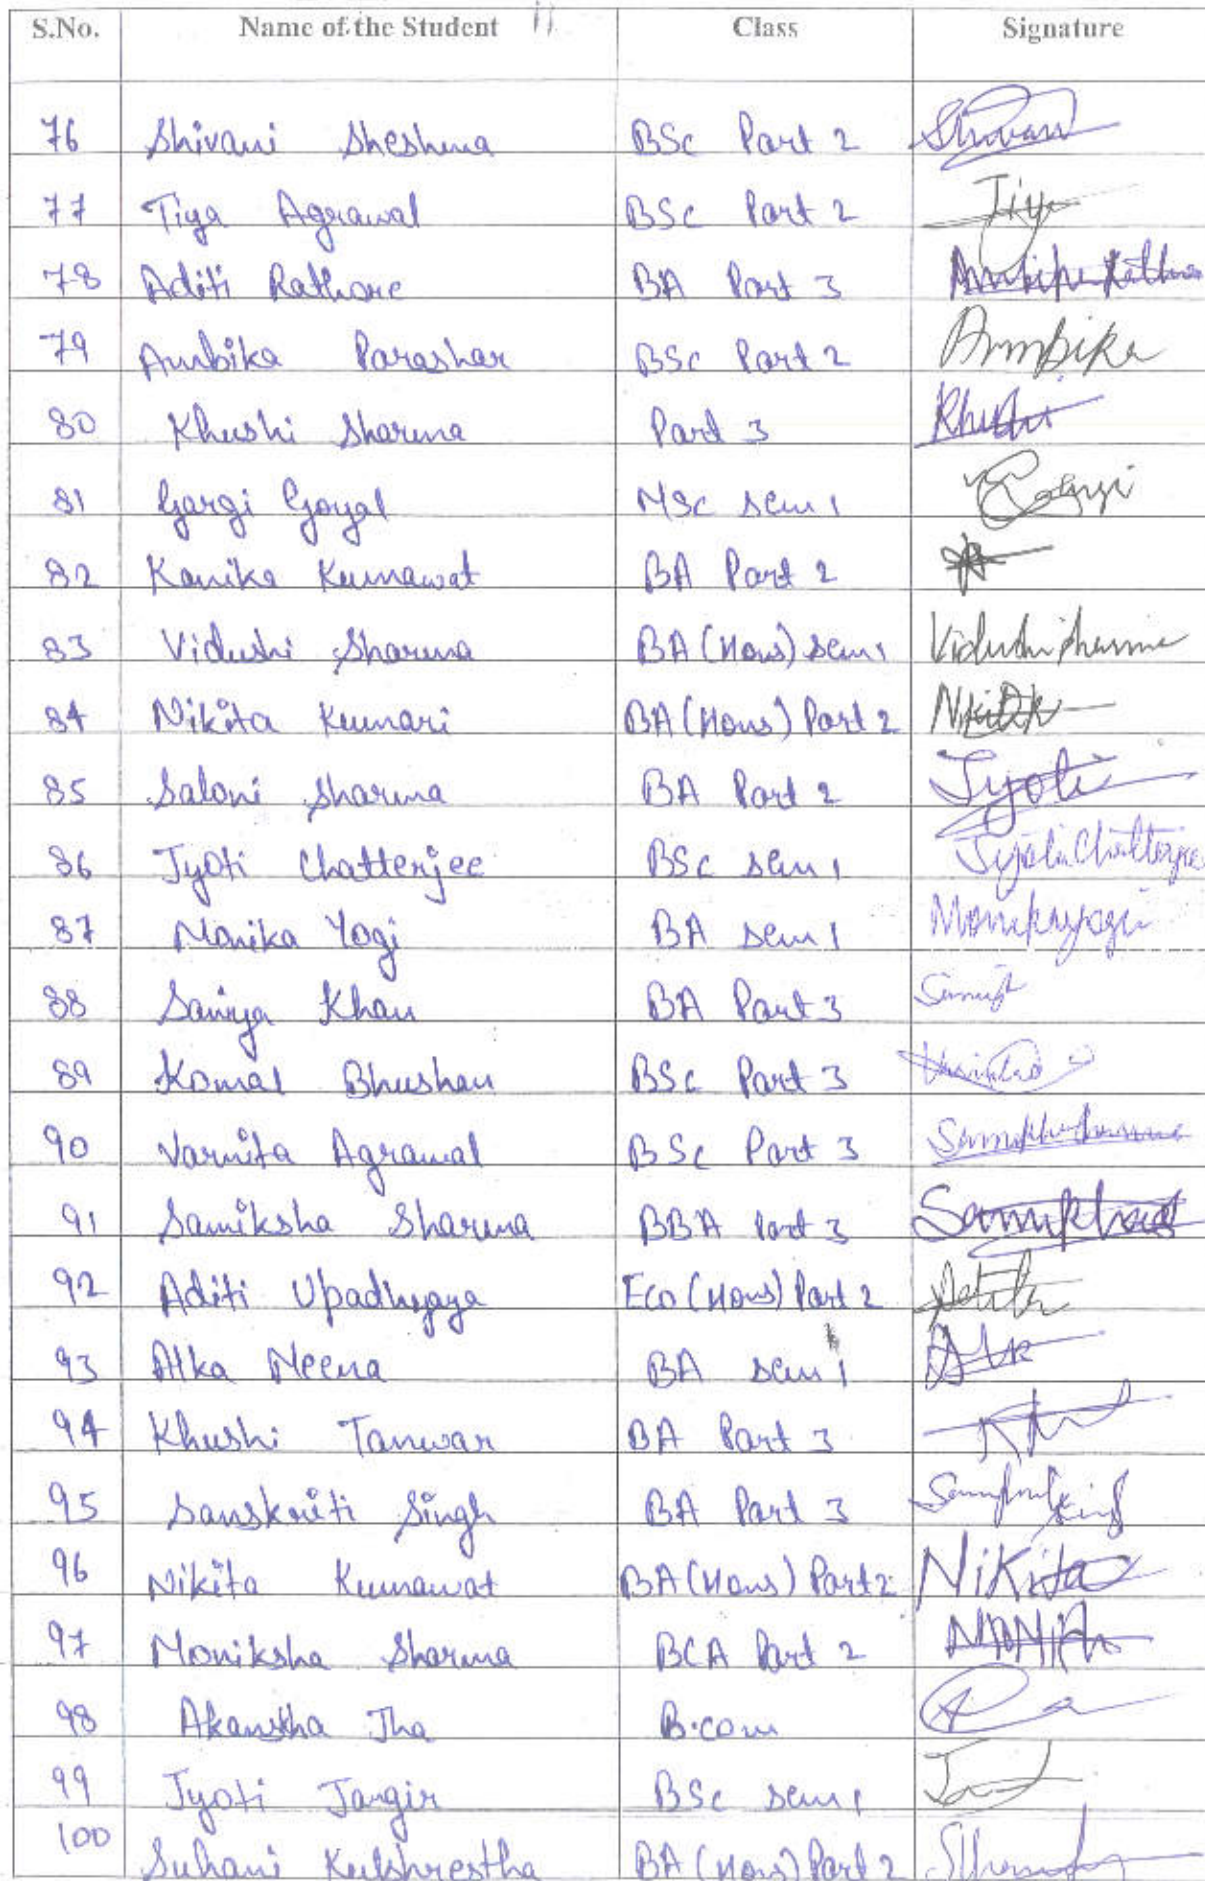 S.No. Name of the Student Class Signature
76 Shivani Sheshma BSc Part 2 Shivani
77 Tiya Agrawal BSc Part 2 Tiya
78 Aditi Rathore BA Part 3
79 Ambika Parashar BSc Part 2 Ambika
80 Khushi Sharma Part 3 Khushi
81 Gargi Goyal MSc Sem 1 Gargi
82 Kanika Kumawat BA Part 2
83 Vidushi Sharma BA (Hons) Sem 1 Vidushi Sharma
84 Nikita Kumari BA (Hons) Part 2 Nikita
85 Saloni Sharma BA Part 2 Jyoti
86 Jyoti Chatterjee BSc Sem 1 Jyoti Chatterjee
87 Monika Yogi BA Sem 1 Monika yogi
88 Saniya Khan BA Part 3
89 Komal Bhushan BSc Part 3
90 Varnita Agrawal BSc Part 3
91 Samiksha Sharma BBA Part 3 Samiksha
92 Aditi Upadhyaya Eco (Hons) Part 2
93 Alka Meena BA Sem 1
94 Khushi Tanwar BA Part 3
95 Sanskriti Singh BA Part 3
96 Nikita Kumawat BA (Hons) Part 2 Nikita
97 Moniksha Sharma BCA Part 2
98 Akanksha Jha B.com
99 Jyoti Jangir BSc Sem 1
100 Suhani Kulshrestha BA (Hons) Part 2